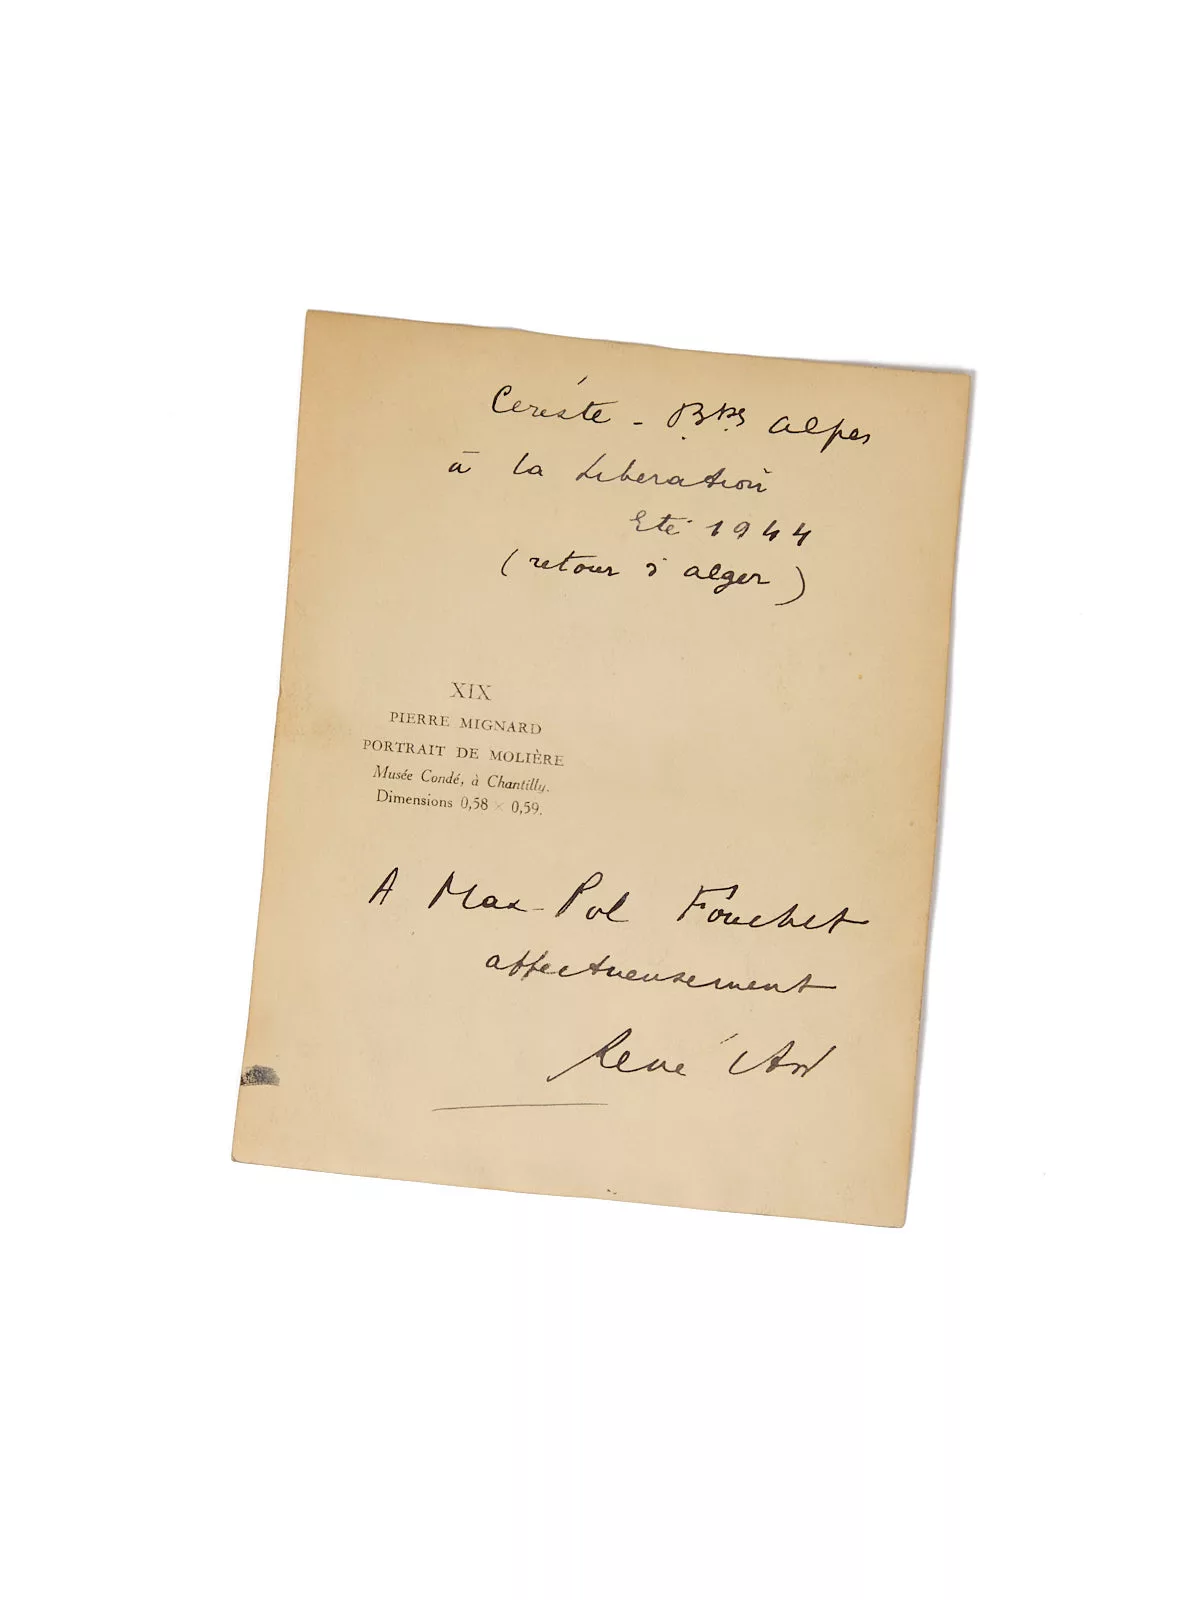 Céreste - Bses Alpes
à la Libération
Eté 1944
(retour d'Alger)
XIX
PIERRE MIGNARD
PORTRAIT DE MOLIÈRE
Musée Condé, à Chantilly.
Dimensions 0,58 × 0,59.
A Max-Pol Fouchet
affectueusement
René Char